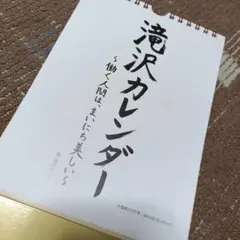 滝沢カレンダー
～働く人間は、まいにち美しい～